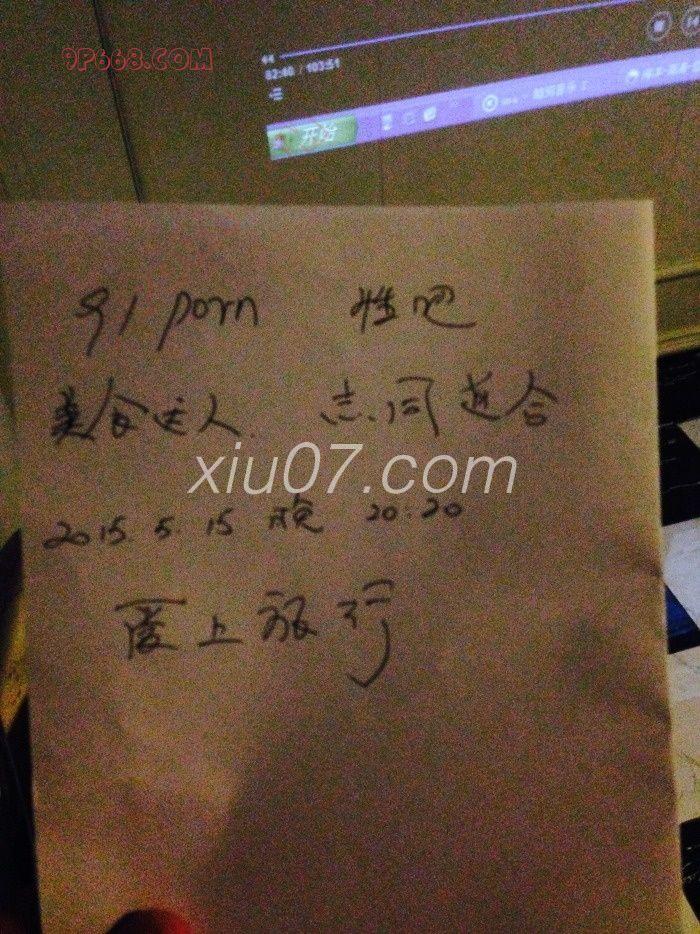 9P668.COM
44
82:40 / 103:51
开始
91 porn 性吧
美食达人 志同道合
xiu07.com
2015. 5. 15 晚 20:20
爱上旅行